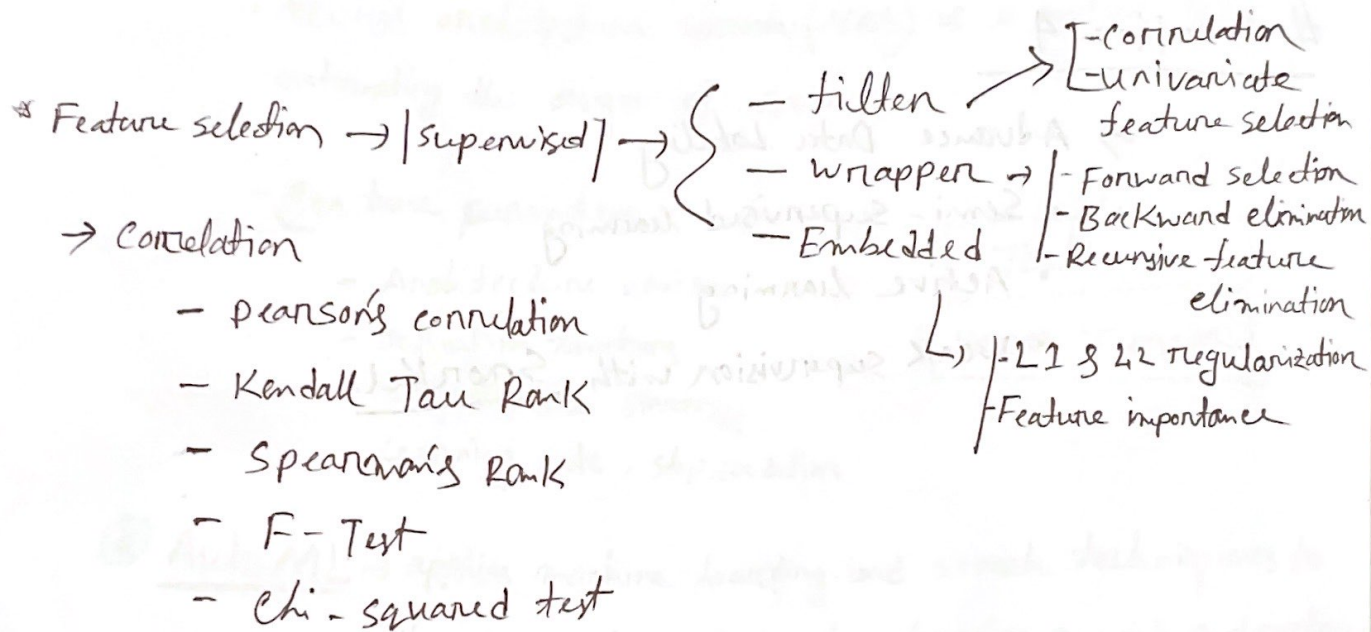 * Feature selection → [supervised] →
- filter →
- correlation
- univariate
feature selection
- wrapper →
- Forward selection
- Backward elimination
- Recursive feature
elimination
- Embedded
- L1 & L2 regularization
- Feature importance
→ Correlation
- Pearson's correlation
- Kendall Tau Rank
- Spearman's Rank
- F-Test
- Chi-squared test